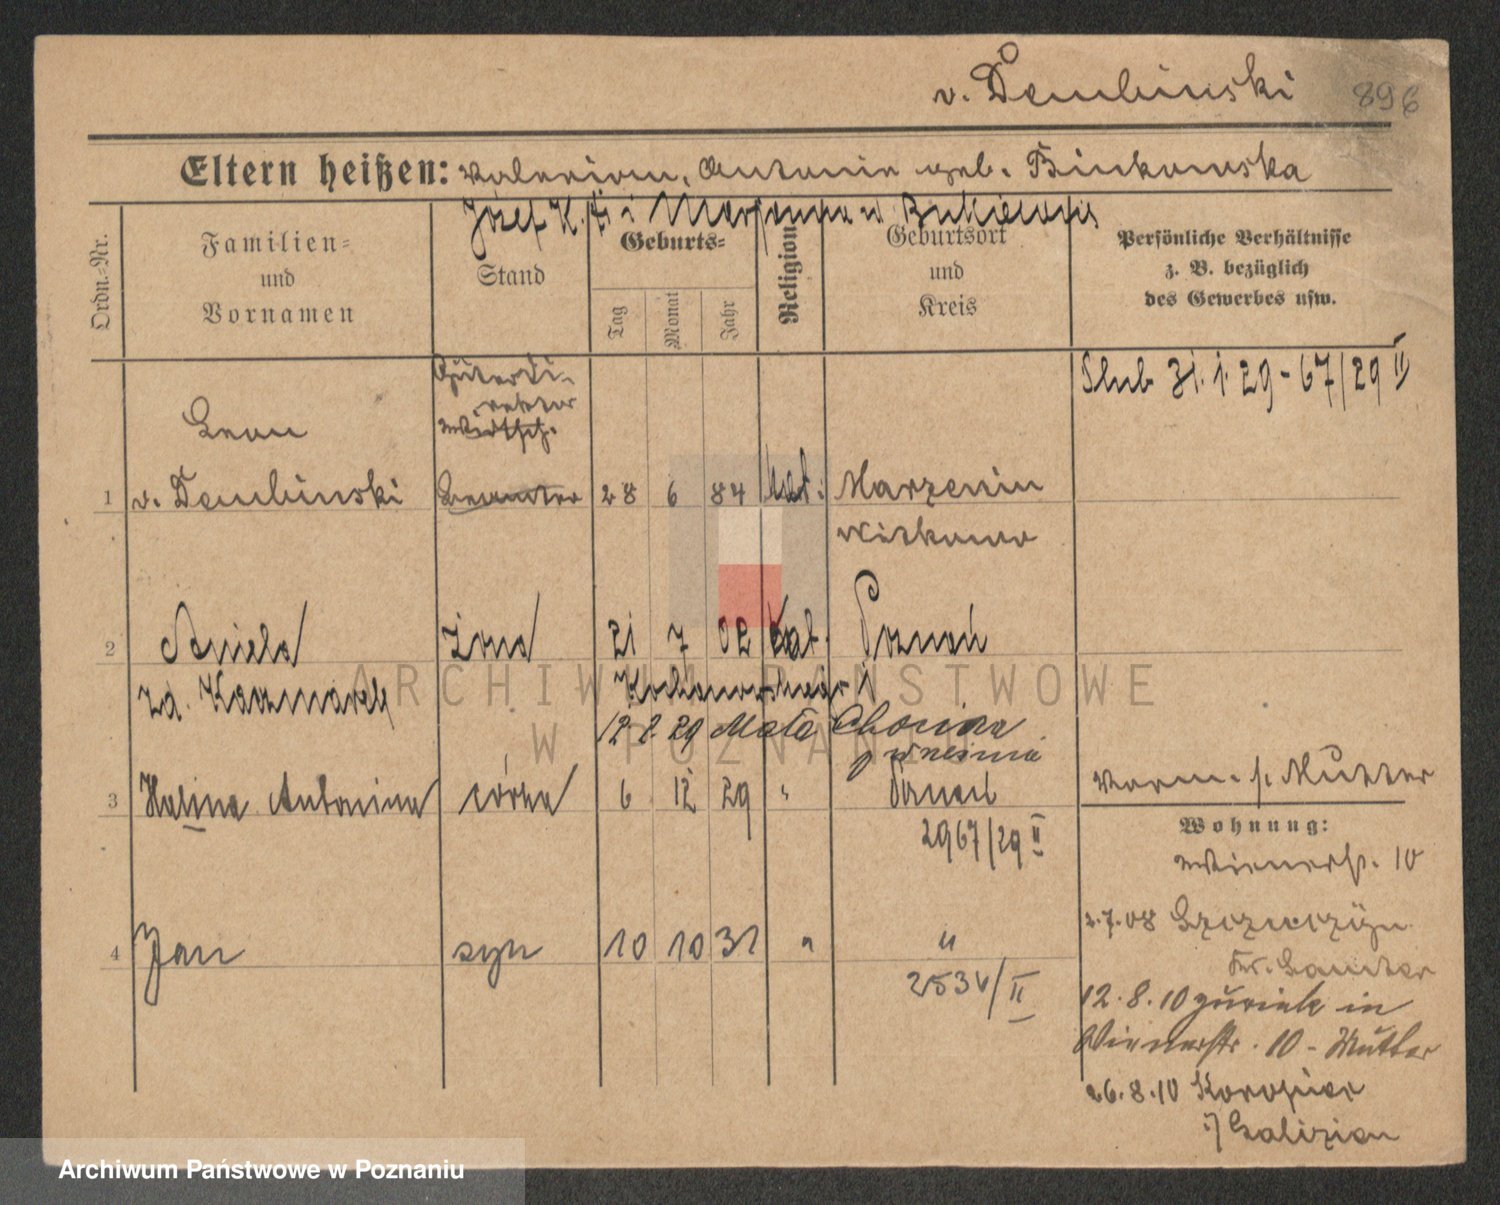 v. Dembinski 896
Eltern heißen: Valerian, Antonie geb. Binkowska
Józef K.
Ordn.-Nr.
Familien-
und
Vornamen
Stand
Geburts-
Tag
Monat
Jahr
Religion
Geburtsort
und
Kreis
Persönliche Verhältnisse
z. B. bezüglich
des Gewerbes usw.
Güterdi-
rektor
Wirtsch.
Ślub 31.1.29 - 67/29 II
Leon
1 v. Dembinski Beamter 28 6 84 kat. Marzenin
Witkowo
2 Aniela żona 21 7 02 kat. Poznań
zd. Kaczmarek
12 2 29 Mała
Września
3 Halina Antonina córka 6 12 29 " Poznań
vorm. s. Mutter
2967/29 II
Wohnung:
Wienerstr. 10
2.7.08
Kr. Samter
4 Jan syn 10 10 31 " "
2534/II
12.8.10 zurück in
Wienerstr. 10 - Mutter
26.8.10
i/ Galizien
ARCHIWUM PAŃSTWOWE
W POZNANIU
Archiwum Państwowe w Poznaniu